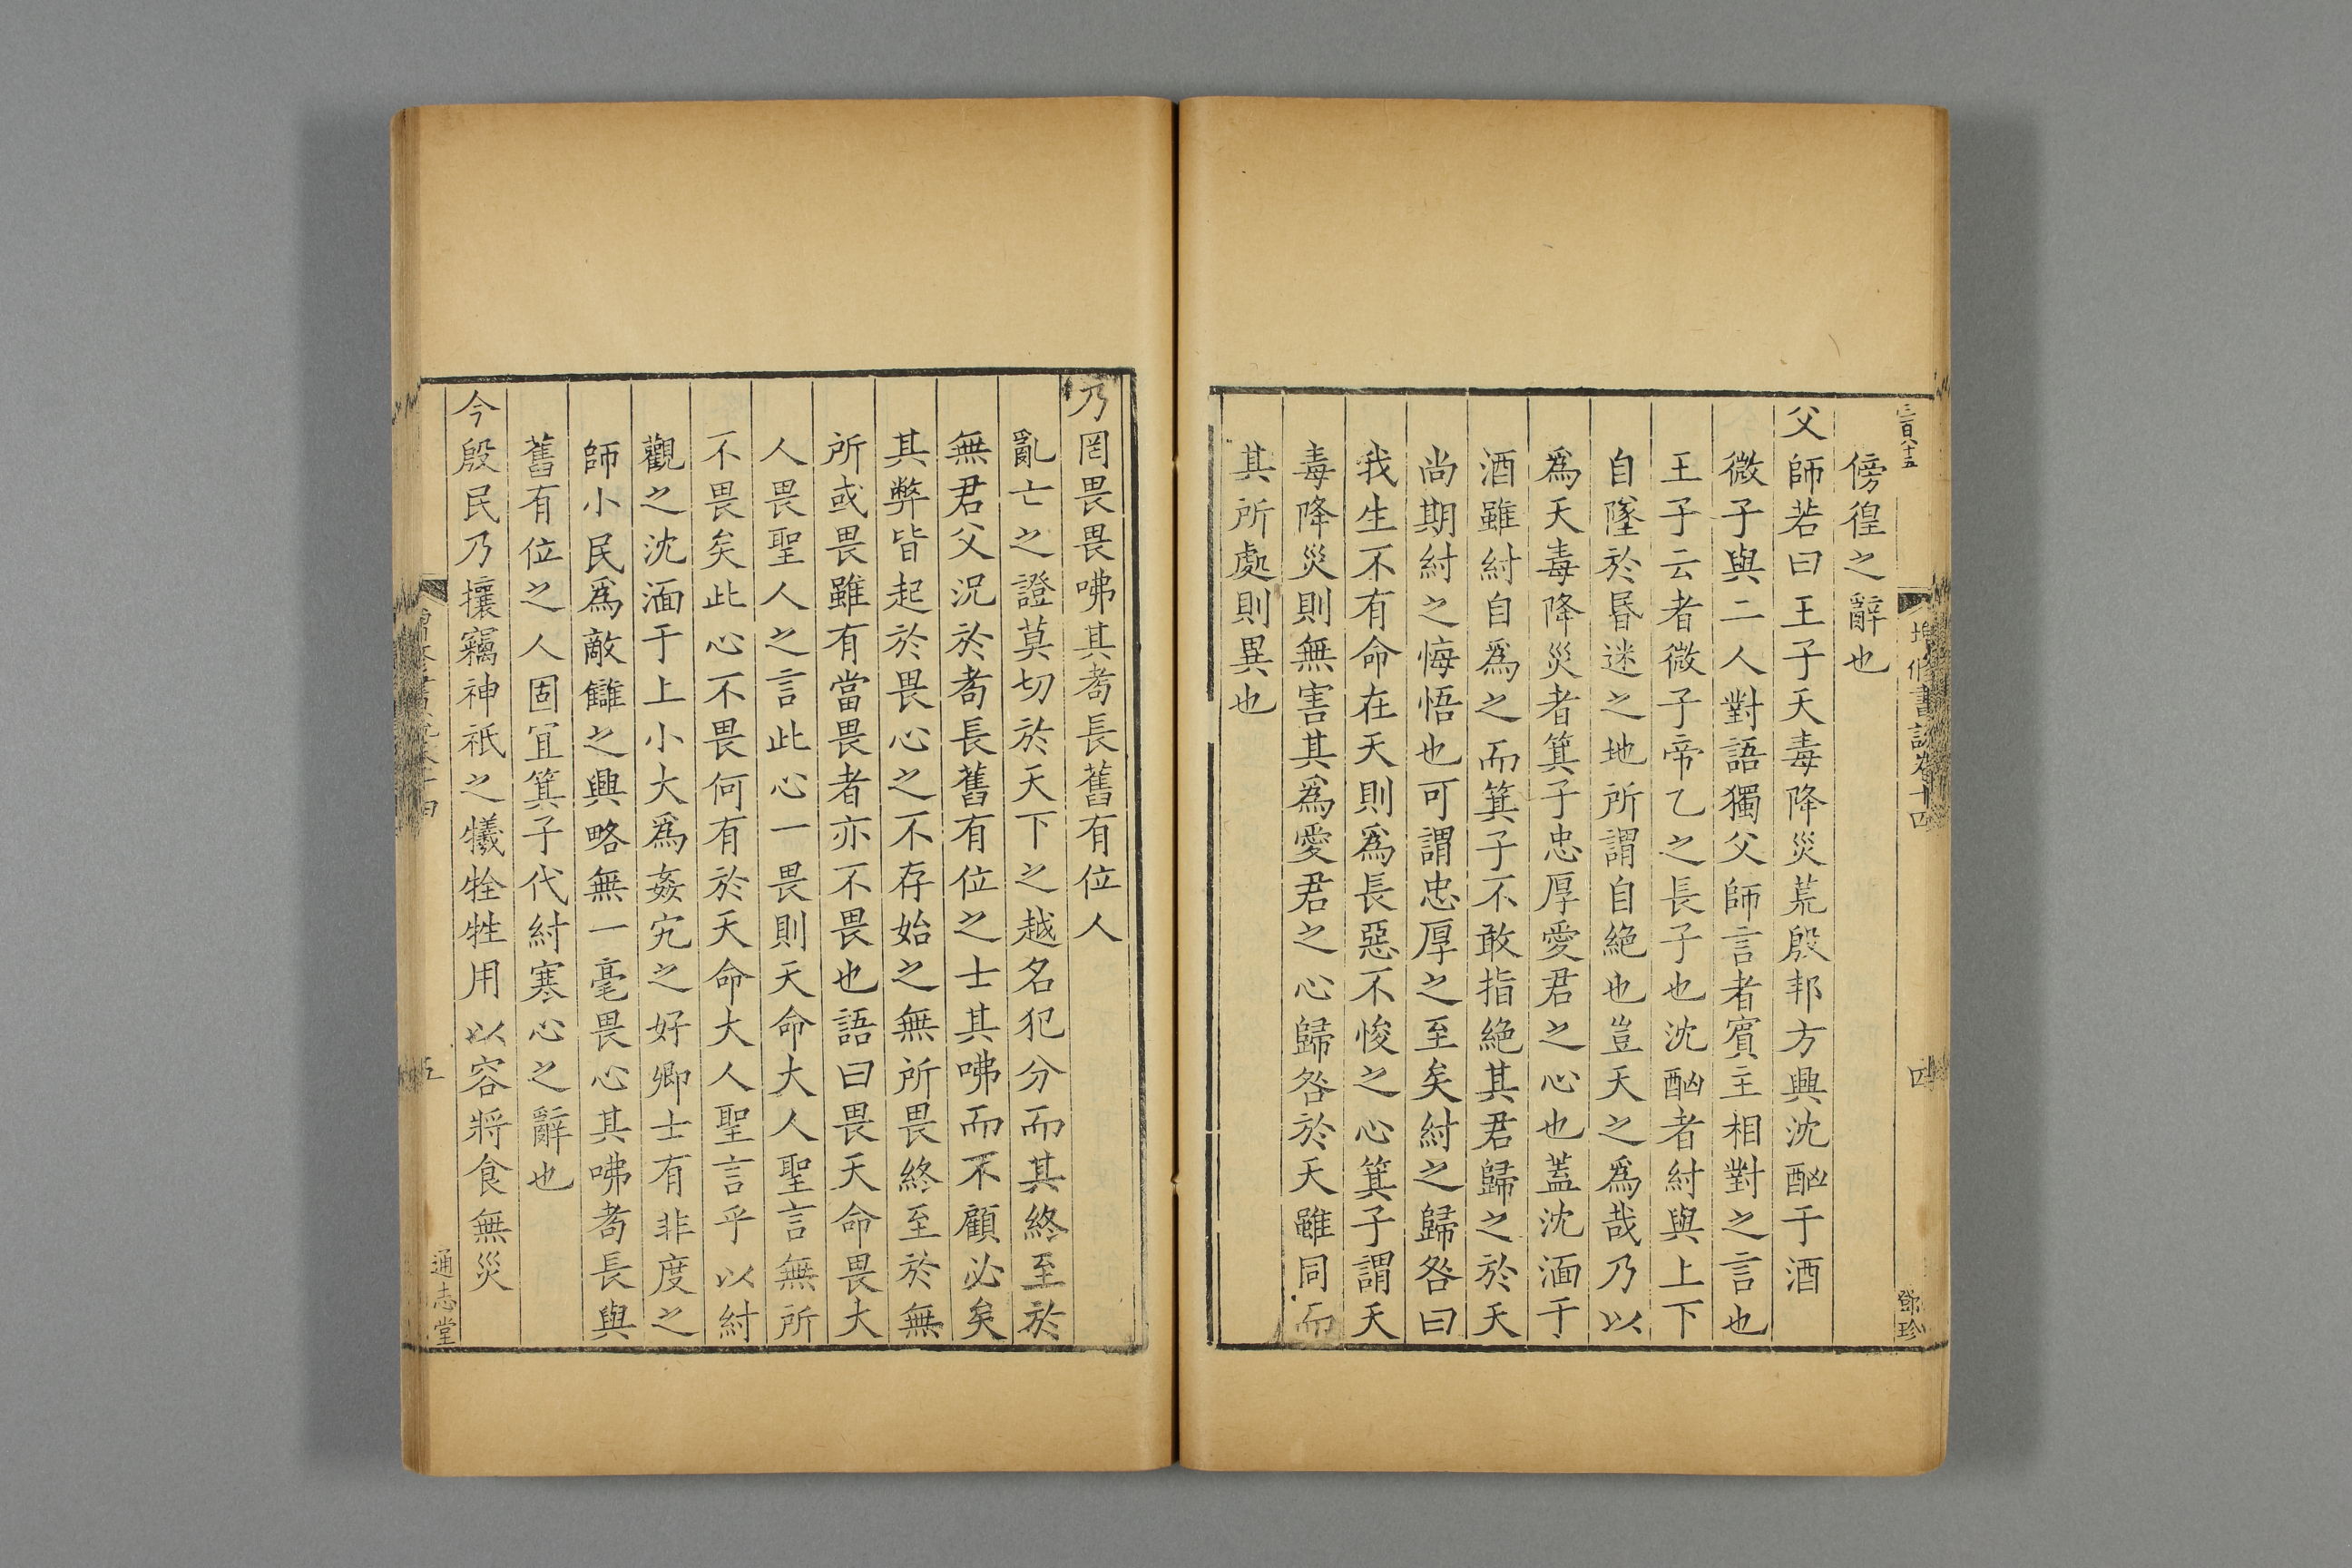 三百八十五
增修書說卷十四
四
鄧珍
傍徨之辭也
父師若曰王子天毒降災荒殷邦方興沈酗于酒
微子與二人對語獨父師言者賓主相對之言也
王子云者微子帝乙之長子也沈酗者紂與上下
自墜於昬迷之地所謂自絕也豈天之爲哉乃以
爲天毒降災者箕子忠厚愛君之心也蓋沈湎于
酒雖紂自爲之而箕子不敢指絕其君歸之於天
尚期紂之悔悟也可謂忠厚之至矣紂之歸咎曰
我生不有命在天則爲長惡不悛之心箕子謂天
毒降災則無害其爲愛君之心歸咎於天雖同而
其所處則異也
乃罔畏畏咈其耇長舊有位人
亂亡之證莫切於天下之越名犯分而其終至於
無君父況於耇長舊有位之士其咈而不顧必矣
其弊皆起於畏心之不存始之無所畏終至於無
所或畏雖有當畏者亦不畏也語曰畏天命畏大
人畏聖人之言此心一畏則天命大人聖言無所
不畏矣此心不畏何有於天命大人聖言乎以紂
觀之沈湎于上小大爲姦宄之好卿士有非度之
師小民爲敵讎之興略無一毫畏心其咈耇長與
舊有位之人固宜箕子代紂寒心之辭也
今殷民乃攘竊神祇之犧牷牲用以容將食無災
五
通志堂